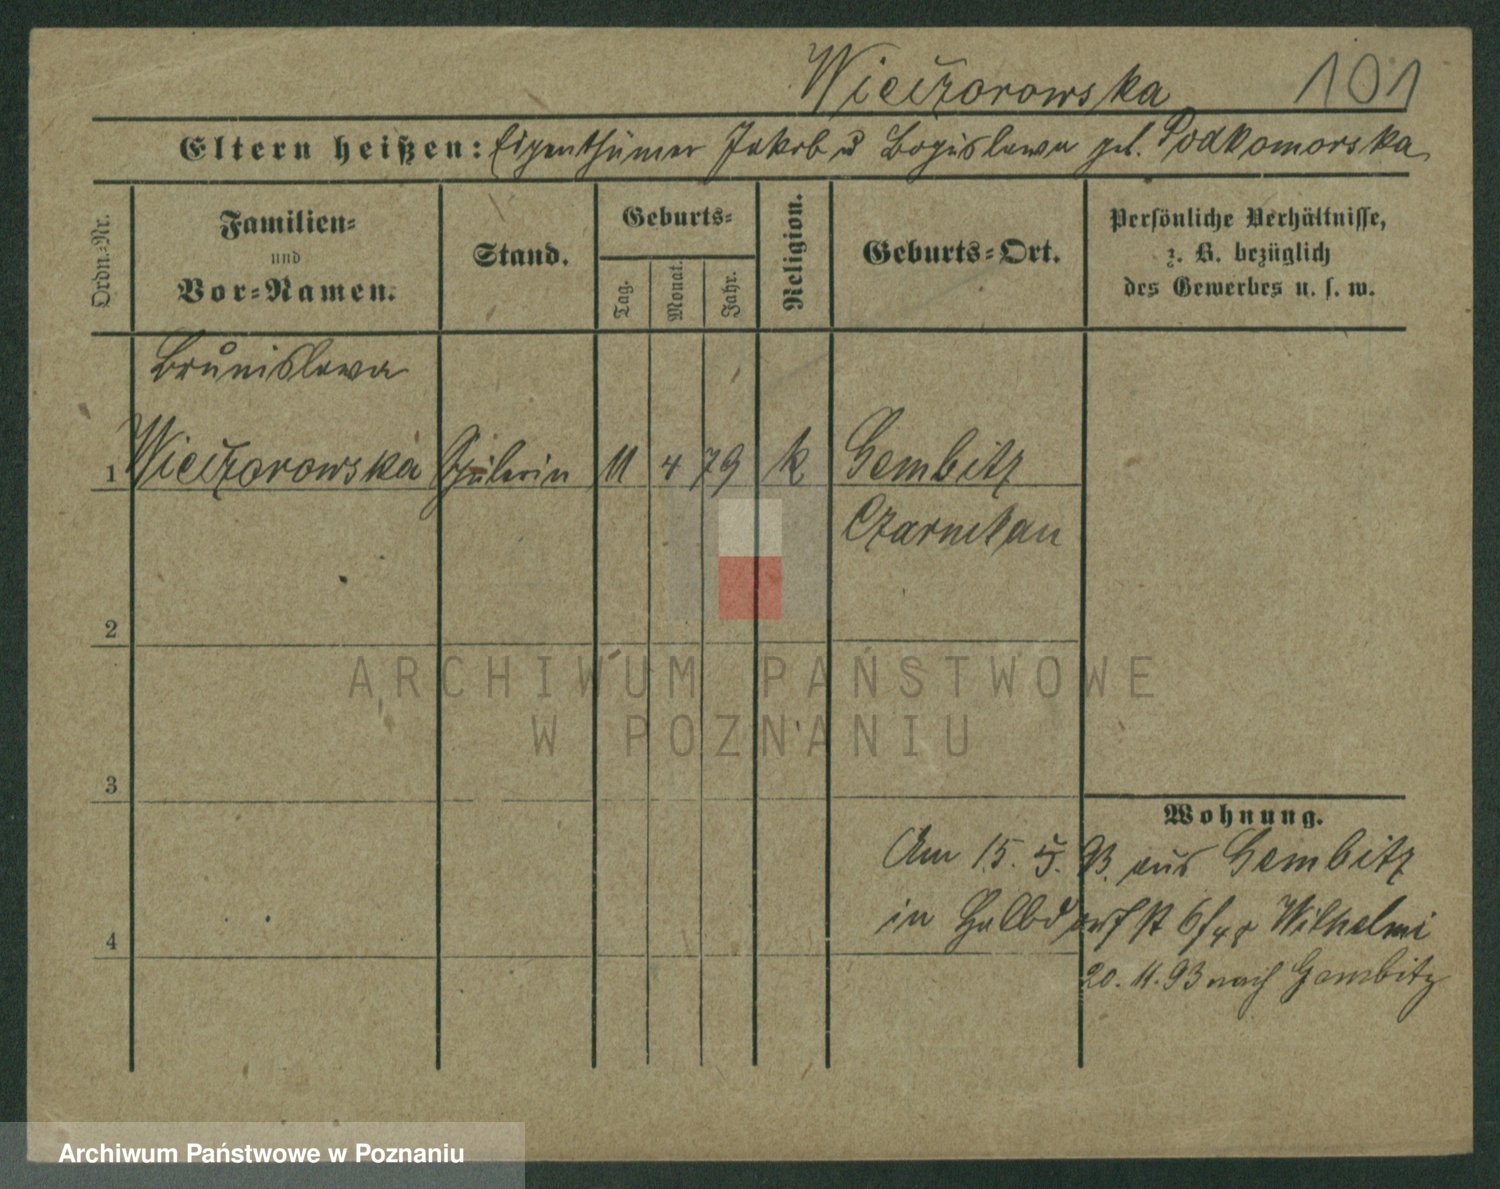 Wieczorowska 101
Eltern heißen: Eigenthümer Jakob u Boguslawa geb. Podkomorska
Ordn.-Nr.
Familien-
und
Vor-Namen.
Stand.
Geburts-
Tag.
Monat.
Jahr.
Religion.
Geburts-Ort.
Persönliche Verhältnisse,
z. B. bezüglich
des Gewerbes u. s. w.
Brunislawa
1 Wieczorowska Schülerin 11 4 79 k Gembitz
Czarnikau
2
ARCHIWUM PAŃSTWOWE
W POZNANIU
3
Wohnung.
Am 15. 5. 93. aus Gembitz
in Halbdorfst Wilhelmi
4
20. 11. 93 nach Gembitz
Archiwum Państwowe w Poznaniu